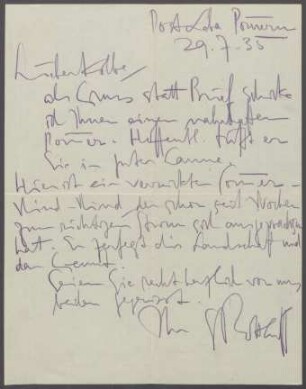 Post Leba Pomern
29.7.35
Lieber Kolbe,
als Gruss statt Brief schicke
ich Ihnen einen
Hoffentl. trifft er
Sie in guter Laune.
Hier ist ein verrückter Sommer -
Wind Wind, der schon seit Wochen
zum richtigen Sturm sich ausgewachsen
hat. Er zerfegt die Landschaft und
das Gemüt.
Seien Sie recht herzlich von uns
beiden gegrüsst.
Ihr